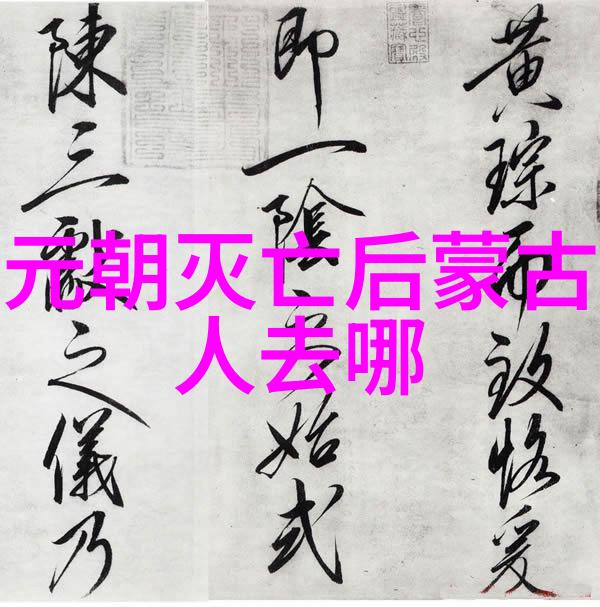 元朝灭亡后蒙古
人去哪
黄琮而致恪爰
即一陰始式
陳三獻之儀乃